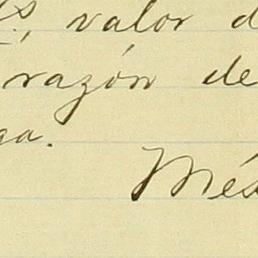 valor d
razón de
ga.
Méx